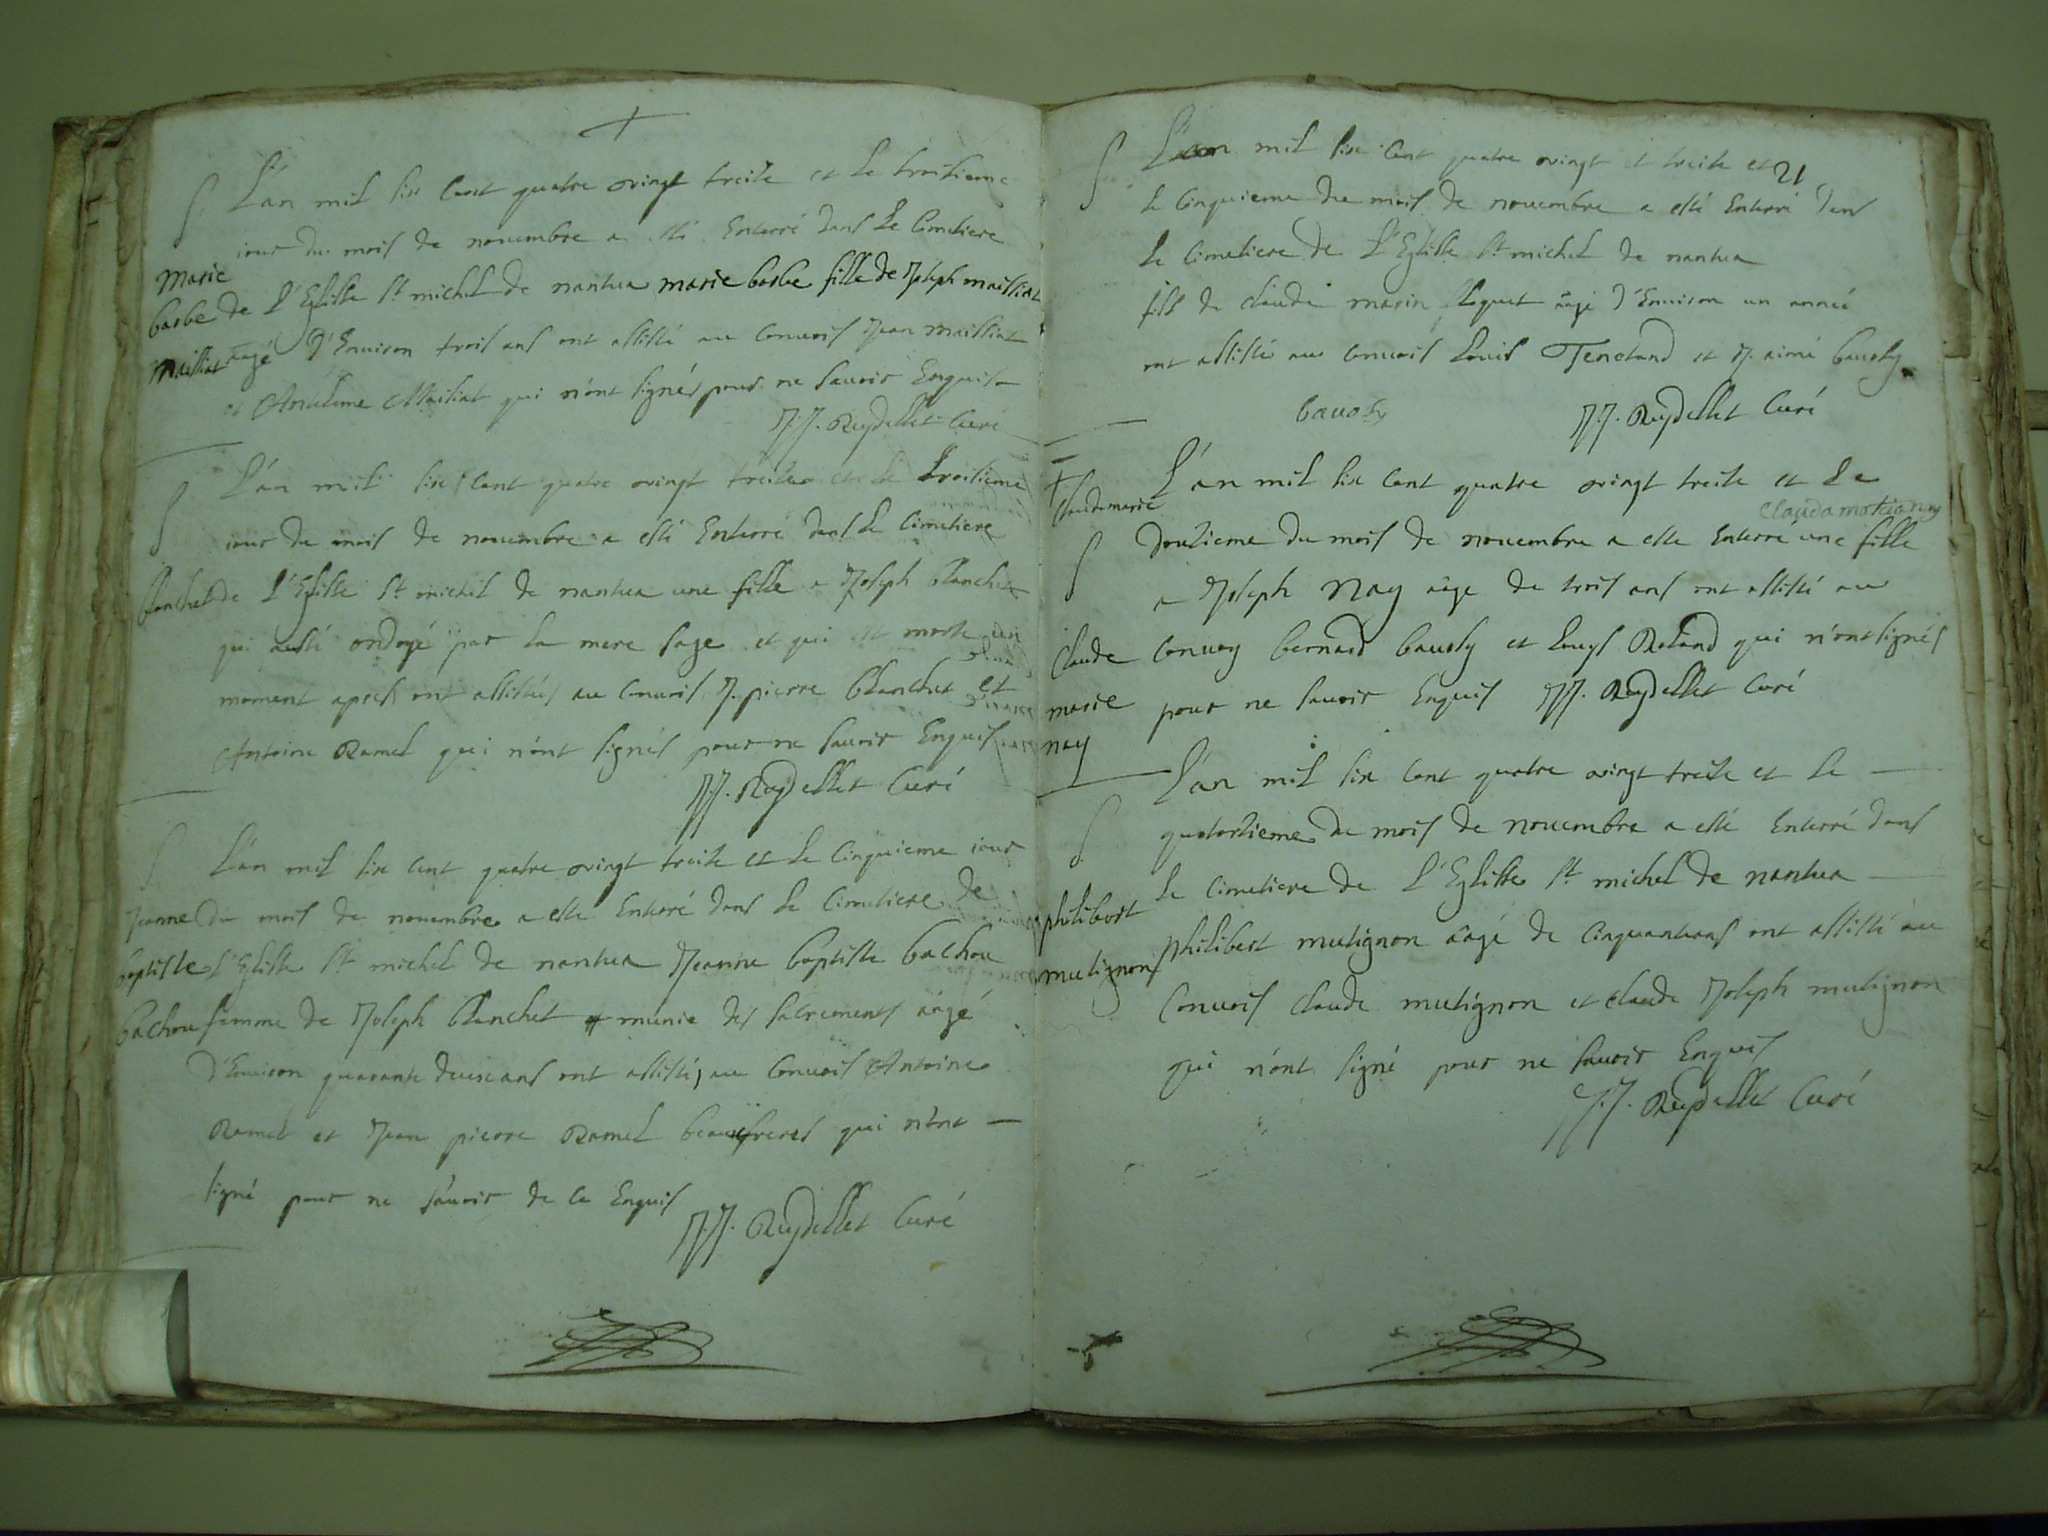 L'an mil six cent quatre vingt treise et le troisieme
iour du mois de novembre a esté Enterré dans Le Cimetiere
Marie
barbe
maillat
de L'Eglisse st michel de nantua marie barbe fille de Joseph mailliat
aagé d'Environ trois ans ont assisté au Convois Jean mailliat
et Anthelme Mailliat qui n'ont signés pour ne savoir Enquis
J.J. Ruydellet Curé
L'an mil six Cent quatre vingt treise et le troisieme
iour du mois de novembre a esté Enterré dans Le Cimetiere
blanchet
de L'Eglisse st michel de nantua une fille a Joseph blanchet
qui a esté ondoyé par la mere sage et qui est morte un
moment apres ont assistés au Convois J. pierre blanchet et
Antoine Ramel qui n'ont signés pour ne savoir Enquis
J.J. Ruydellet Curé
L'an mil six cent quatre vingt treise et Le Cinquieme iour
Jeanne
baptiste
bachou
du mois de novembre a esté Enterré dans Le Cimetiere de
L'Eglisse st michel de nantua Jeanne baptiste bachou
femme de Joseph blanchet munie des sacrements aagé
d'Environ quarante deux ans ont assistés au Convois Antoine
Ramel et Jean pierre Ramel beaufreres qui n'ont
signé pour ne sávoir de Ce Enquis
J.J. Ruydellet Curé
21
L'an mil six Cent quatre vingt et treise et
le Cinquieme du mois de novembre a esté Enterré dans
Le Cimetiere de L'Eglisse st michel de nantua
fils de claude marin aagé d'Environ un année
ont assistés au Convois Louis et J. aimé bavosy
bavosy
J.J. Ruydellet Curé
L'an mil six Cent quatre vingt treise et Le
Claude marie
douzieme du mois de novembre a esté Enterré une fille
a Joseph Nay aage de trois ans ont assisté au
Claude
marie
nay
Convoy bernard bavosy et Louys Roland qui n'ont signés
pour ne savoir Enquis J.J. Ruydellet Curé
L'an mil six Cent quatre vingt treise et Le
quatorzieme du mois de novembre a esté Enterré dans
Le Cimetiere de L'Eglisse st michel de nantua
philibert
mutignon
philibert mutignon aagé de Cinquante ans ont assisté au
Convois Claude mutignon et Claude Joseph mutignon
qui n'ont signé pour ne savoir Enquis
J.J. Ruydellet Curé